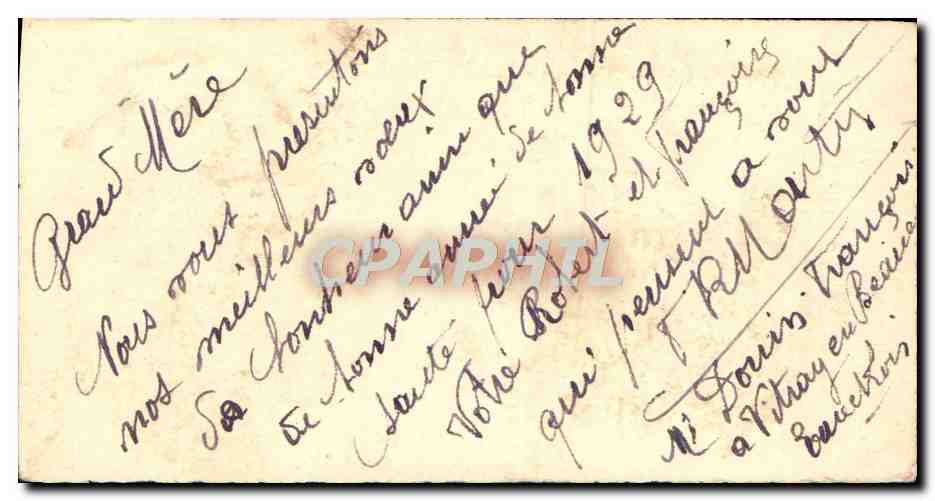 Grand Mère
Nous vous presentons
nos meilleurs vœux
de bonheur ainsi que
de bonne année de bonne
santé pour 1929
Votre Robert et françoise
qui pensent a vous
RMarty
Mr Douin François
a Vitray en Beauce
CPARPHIL